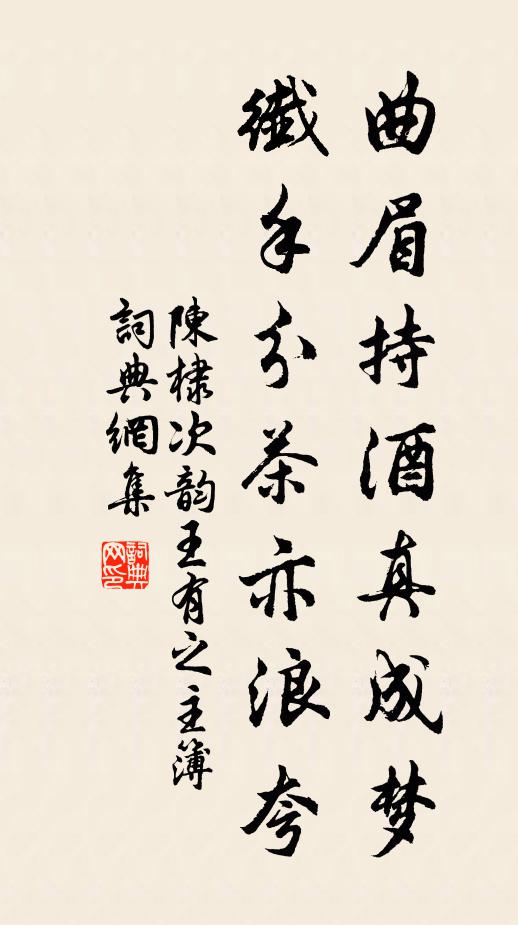 曲眉持酒真成梦
纖手分茶亦浪夸
陳棣次韵王有之主簿
詞典網集
詞典网印